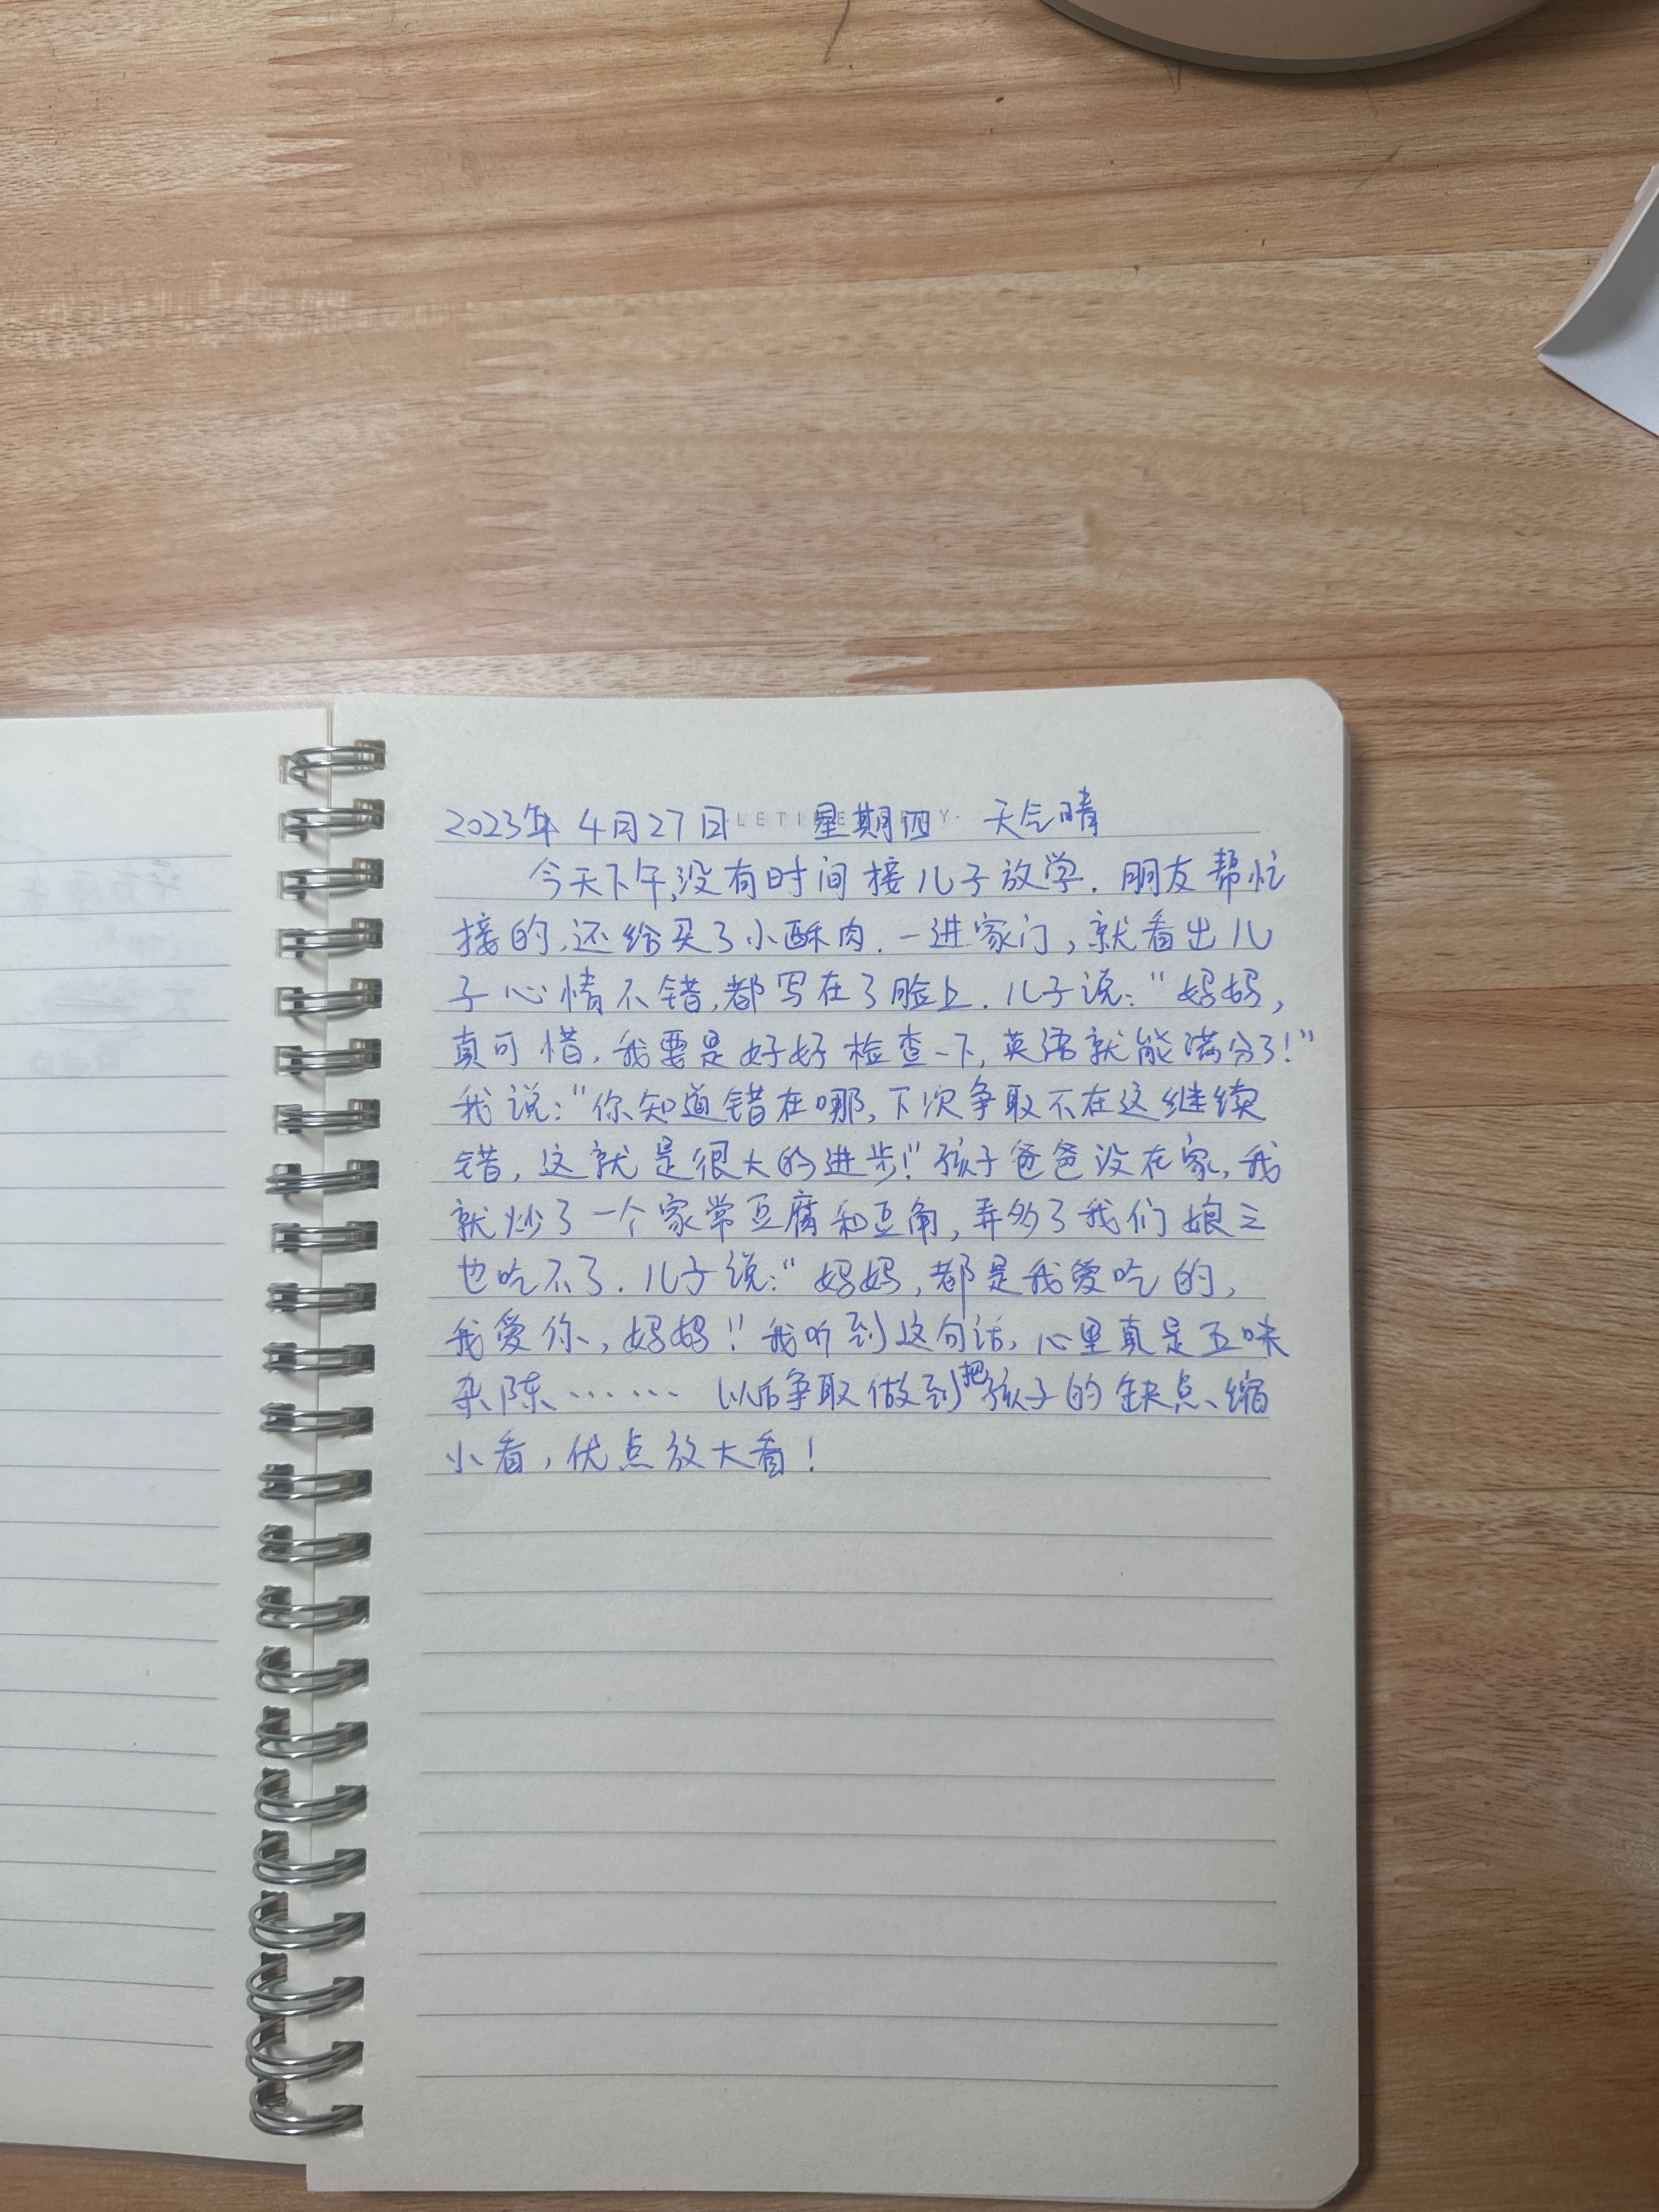 2023年 4月27日 星期四 天气晴
今天下午,没有时间接儿子放学.朋友帮忙
接的,还给买了小酥肉.一进家门,就看出儿
子心情不错,都写在了脸上.儿子说:“妈妈,
真可惜,我要是好好检查一下,英语就能满分了!”
我说:“你知道错在哪,下次争取不在这继续
错,这就是很大的进步!”孩子爸爸没在家,我
就炒了一个家常豆腐和豆角,弄多了我们娘三
也吃不了.儿子说:“妈妈,都是我爱吃的,
我爱你,妈妈!”我听到这句话,心里真是五味
杂陈…… 以后争取做到把孩子的缺点缩
小看,优点放大看!